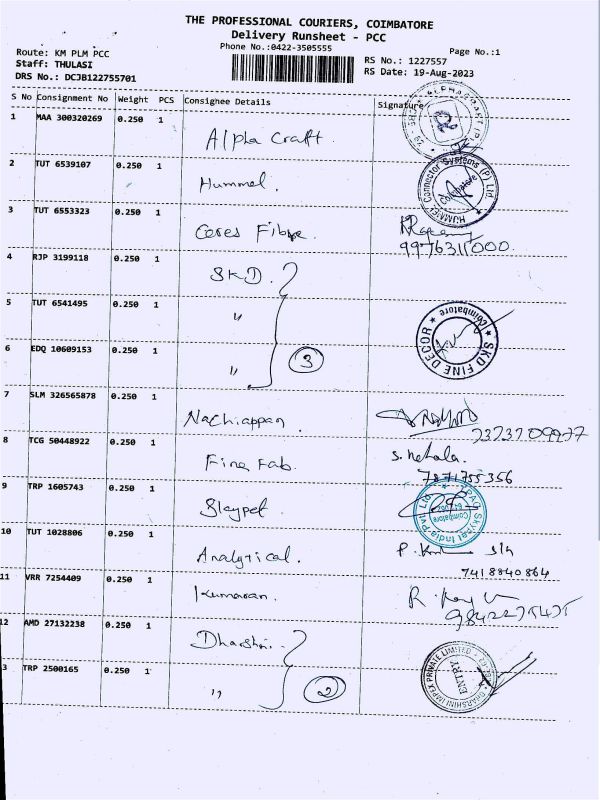 THE PROFESSIONAL COURIERS, COIMBATORE
Delivery Runsheet - PCC
Phone No.:0422-3505555
Page No.:1
Route: KM PLM PCC
Staff: THULASI
DRS No.: DCJB122755701
RS No.: 1227557
RS Date: 19-Aug-2023
S No Consignment No Weight PCS Consignee Details Signature
1 MAA 300320269 0.250 1 Alpha Craft.
2 TUT 6539107 0.250 1 Hummel. HUMMEL Connector Systems (P) Ltd. Coimbatore
3 TUT 6553323 0.250 1 Ceres Fibre.
9976311000
4 RJP 3199118 0.250 1 SKD.
5 TUT 6541495 0.250 1 " SKD FINE DECOR ★ Coimbatore ★
6 EDQ 10609153 0.250 1 " 3
7 SLM 326565878 0.250 1 Nachiappan.
8 TCG 50448922 0.250 1 Fine Fab. S. Nehala.
7871755356
9 TRP 1605743 0.250 1 Skypet India Pvt Ltd Coimbatore
10 TUT 1028806 0.250 1 Analytical.
7418840864
11 VRR 7254409 0.250 1 Kumaran.
12 AMD 27132238 0.250 1 Dharshni. DHARSHINI IMPEX PRIVATE LIMITED ENTRY
3 TRP 2500165 0.250 1 " 2